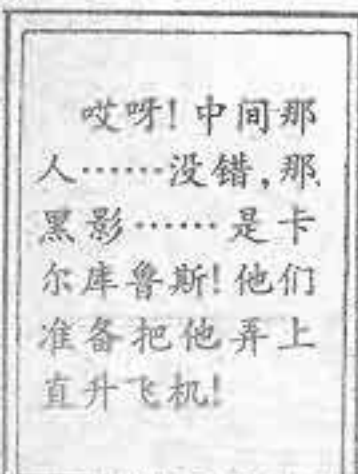 哎呀!中间那
人……没错,那
黑影……是卡
尔库鲁斯!他们
准备把他弄上
直升飞机!